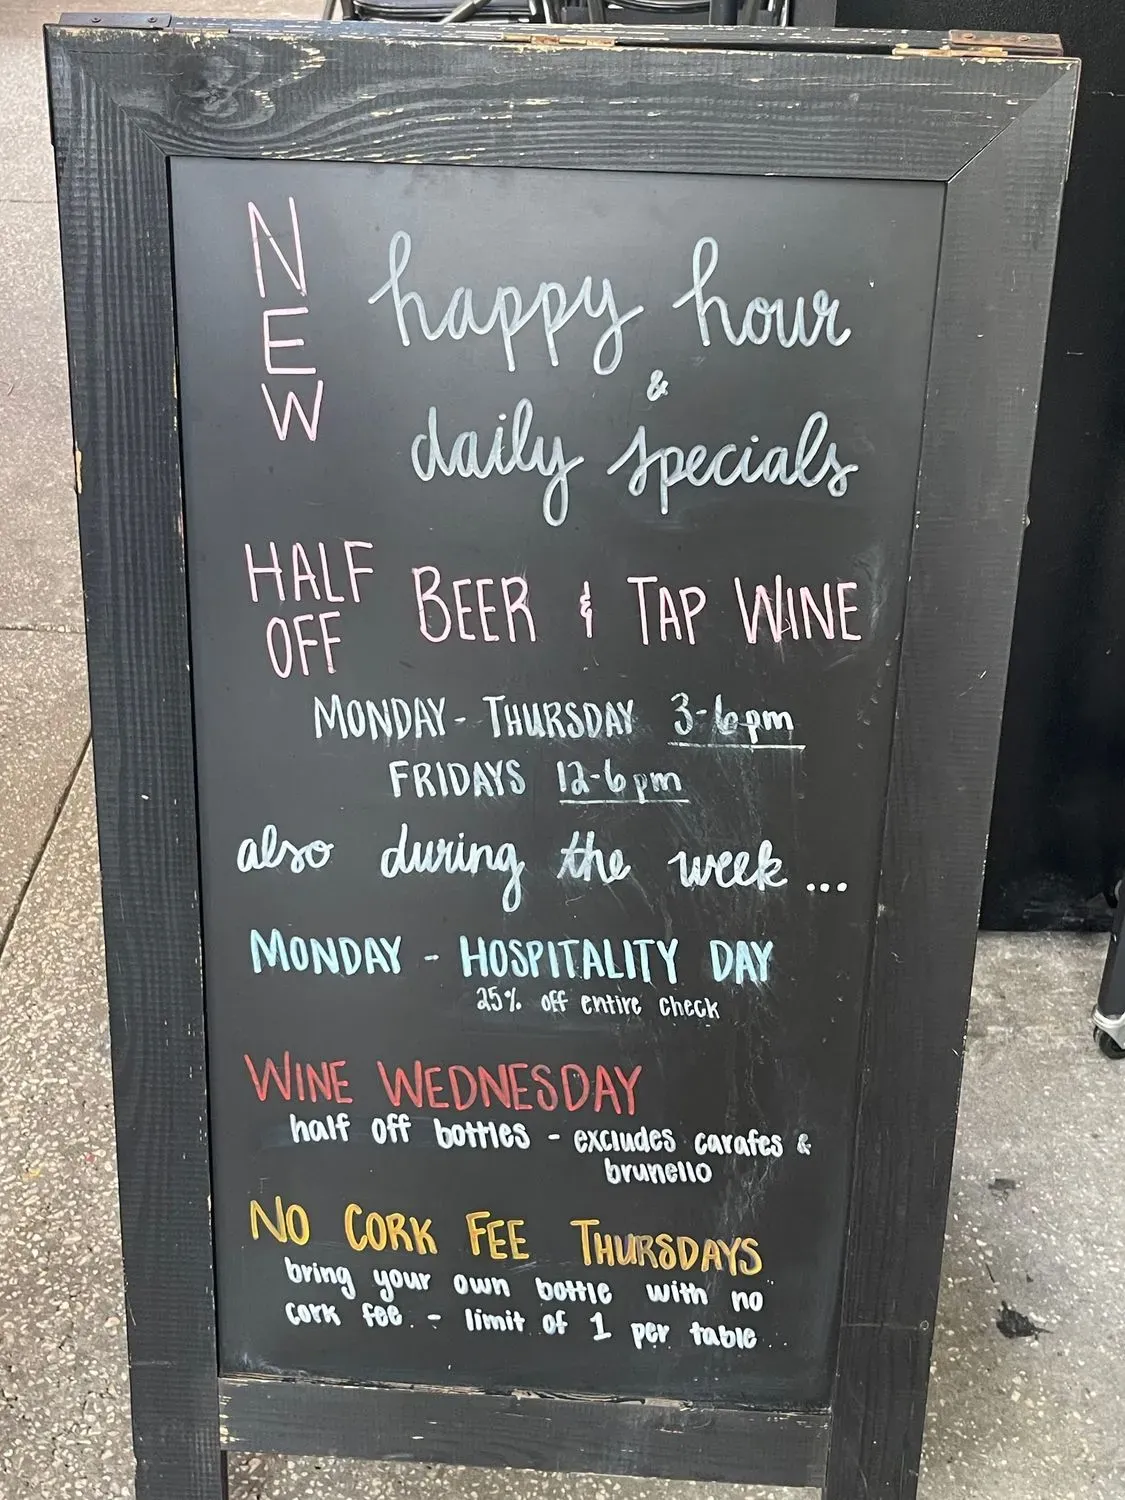 NEW
happy hour
&
daily specials
HALF OFF BEER & TAP WINE
MONDAY - THURSDAY 3-6pm
FRIDAYS 12-6pm
also during the week...
MONDAY - HOSPITALITY DAY
25% off entire check
WINE WEDNESDAY
half off bottles - excludes carafes &
brunello
NO CORK FEE THURSDAYS
bring your own bottle with no
cork fee. - limit of 1 per table